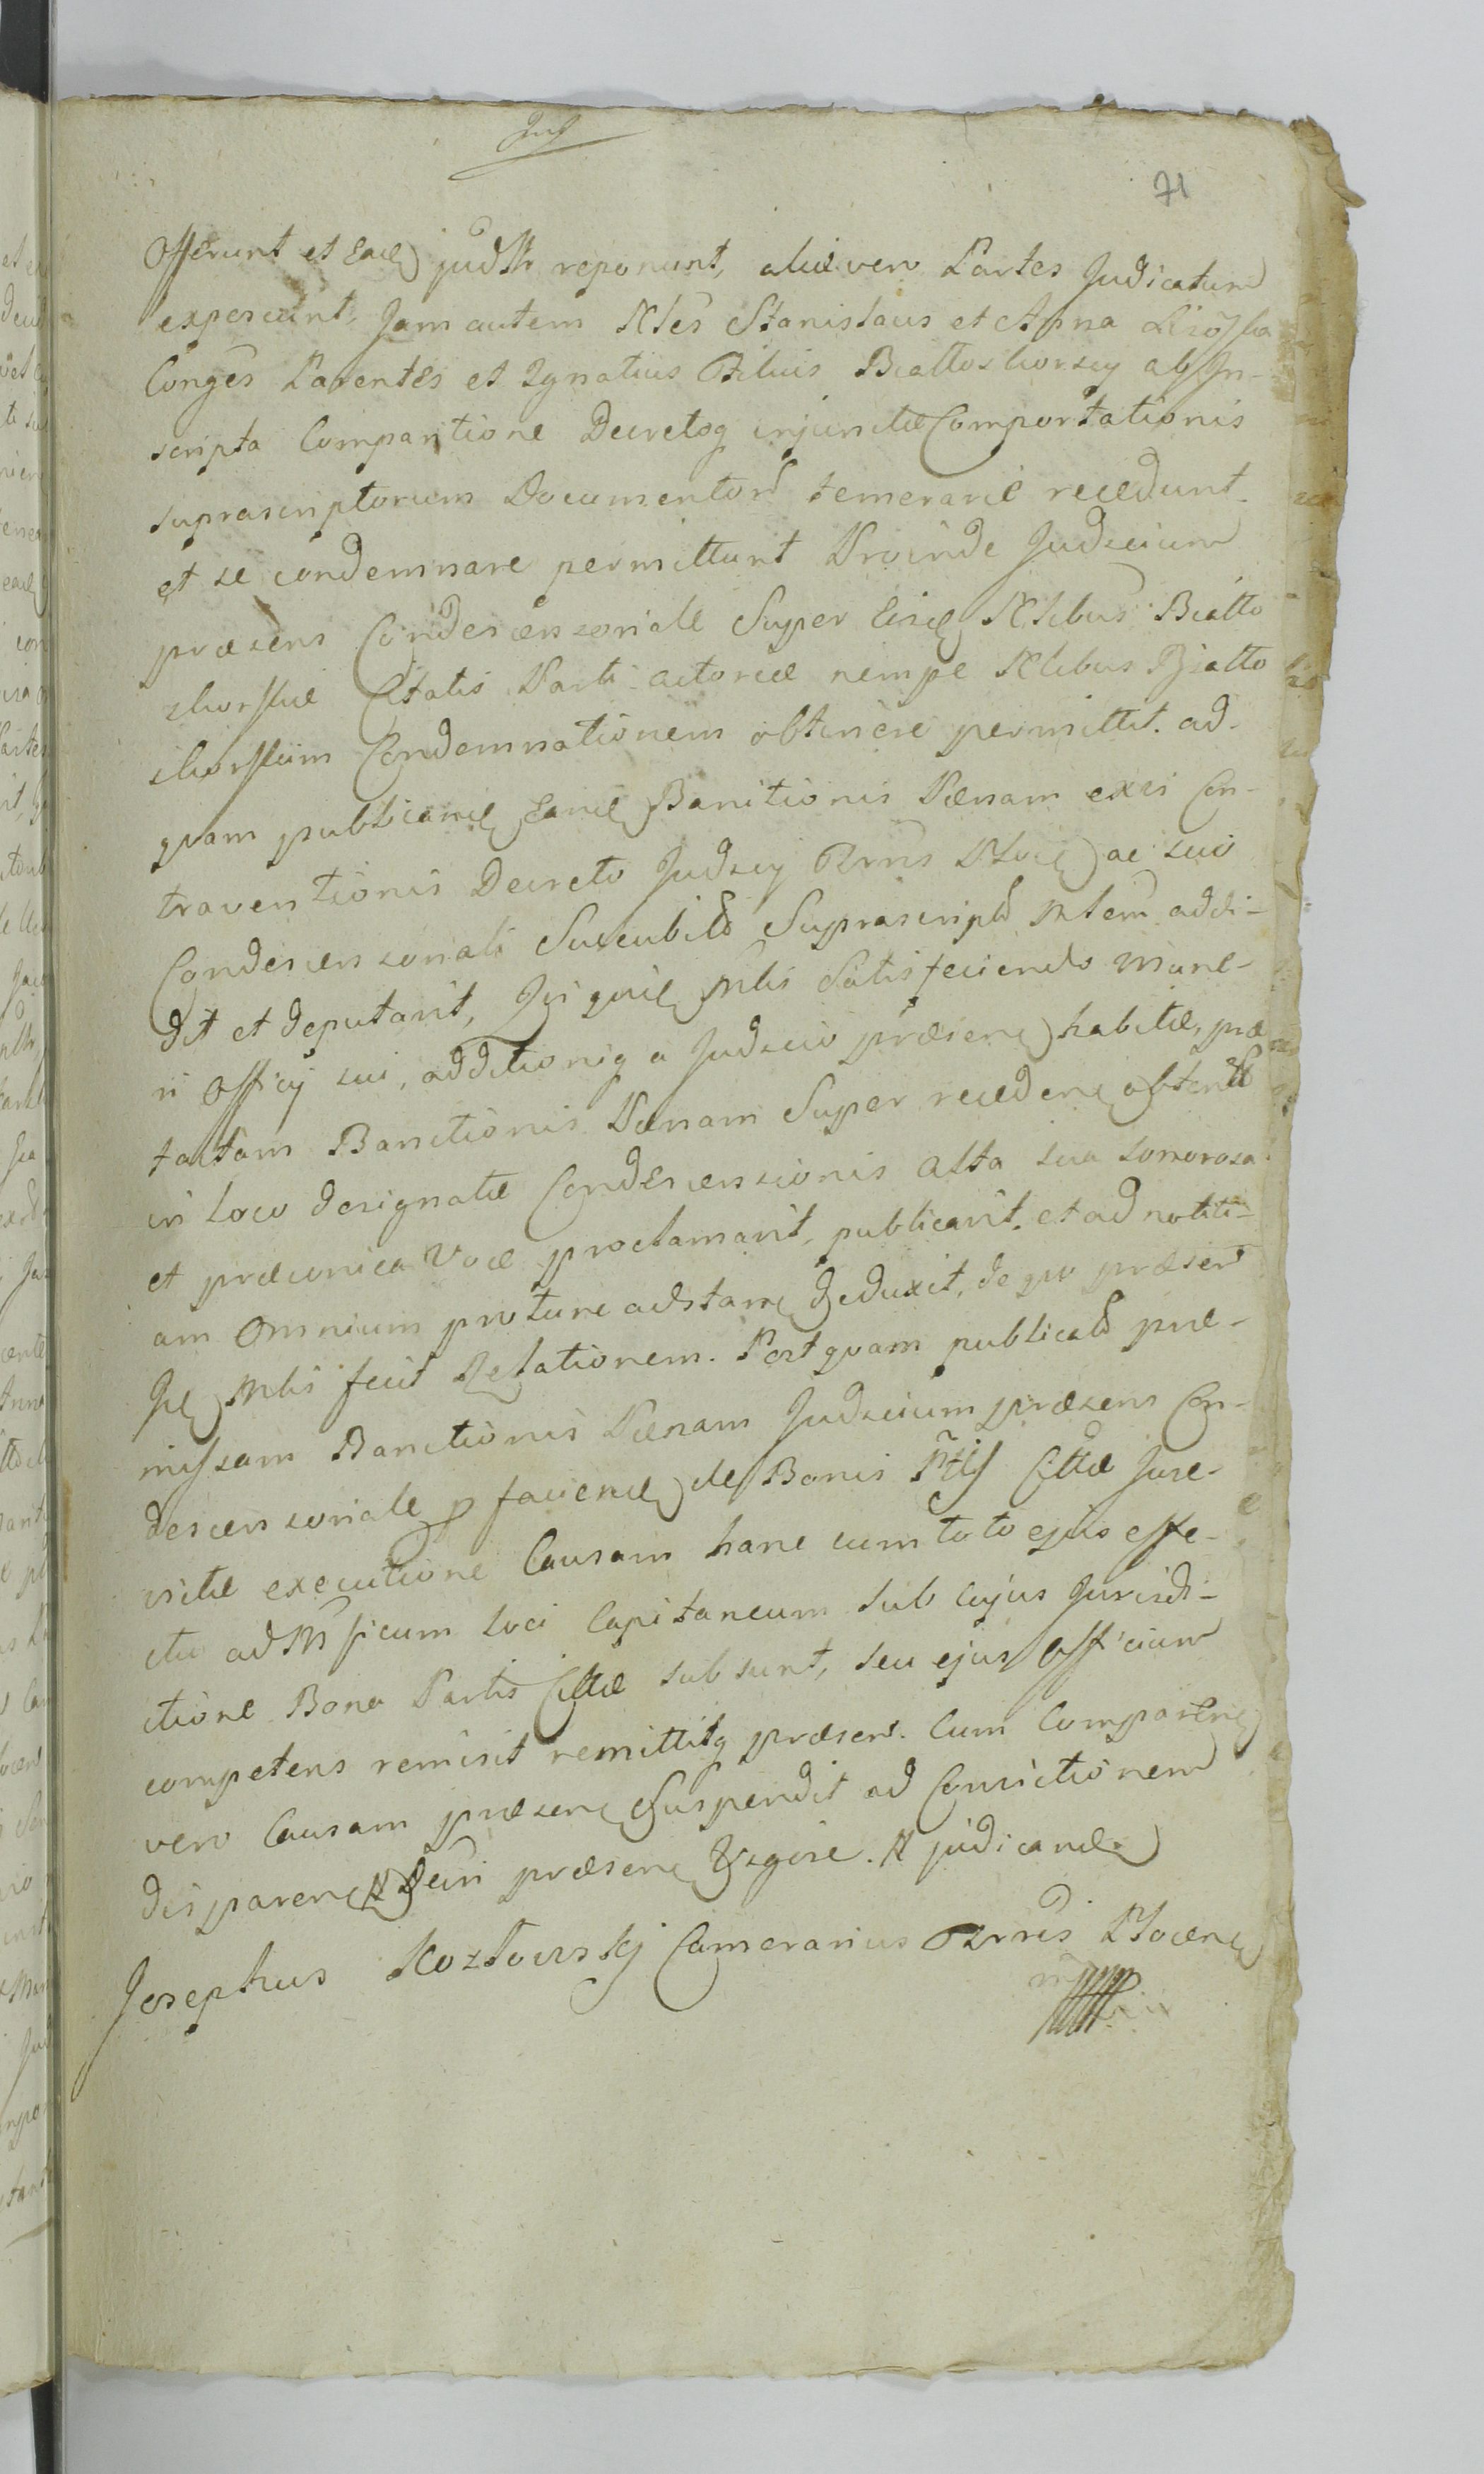 71
Offerunt et Ead judtr reponunt, aliæ vero Partes Judicatum
exposcunt, Jam autem Nles Stanislaus et Anna
Conges Parentes et Ignatius Filius Białłoskorscy ab In-
scripta Comparitione Decretoq injunctæ Comportationis
suprascriptorum Documentor temerarie recedunt
et se condemnare permittunt Proinde Judicium
præsens Condescensoriale Super Eisd Nlibus Białło
skorskie Citatis Parti actoreæ nempe Nlibus Białło
skorskim Condemnationem obtinere permittit. ad
quam publicand Eand Banitionis Pænam exei Con-
traventionis Decreto Judicy Trrns ac suo
Condescensoriali Succubit Suprascript Mlem addi-
dit et deputavit, Isq Mlis Satisfaciendo mune-
ri Officij sui, additioniq a Judicio præsen habitæ, præ
tactam Banitionis Pænam Super receden obtent
in loco designatæ Condescensionis alta sua sonorosa
et præconica Voce proclamavit, publicavit, et ad notiti-
am Omnium pro tunc adstan deduxit, de quo præsen
Id Mlis fecit Relationem. Postquam publicat præ-
missam Banitionis Pænam Judicium præsens Con-
descensoriale p faciend de Bonis Ptis Cittæ Jure
victæ executione Causam hanc cum toto ejus effe-
ctu ad Mficum loci Capitaneum sub cujus Jurisdi-
ctione Bona Partis Cittæ subsunt, seu ejus Officium
competens remisit remittitq præsen. Cum Comparen
vero Causam præsen Suspendit ad Convictionem
disparen Decri præsen Vigore. judicand
Josephus Kozłowskj Camerarius Trris Plocen